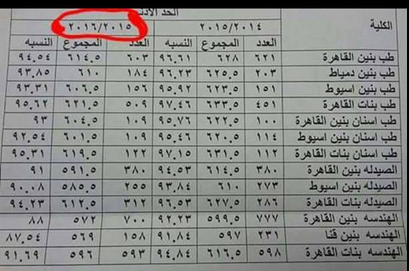 الحد الأدنى
الكلية ٢٠١٥/٢٠١٤ ٢٠١٦/٢٠١٥
العدد المجموع النسبه العدد المجموع النسبه
طب بنين القاهرة ٦٢١ ٦٢٨ ٩٦.٦١ ٦٠٣ ٦١٤.٥ ٩٤.٥٤
طب بنين دمياط ٢٠٣ ٦٢٥.٥ ٩٦.٢٣ ١٨٤ ٦١٠ ٩٣.٨٥
طب بنين اسيوط ١٥١ ٦٢٣.٥ ٩٥.٩٢ ١٥٦ ٦٠٦.٥ ٩٣.٣١
طب بنات القاهرة ٤٥١ ٦٣٣.٥ ٩٧.٤٦ ٥٠٩ ٦٢١.٥ ٩٥.٦٢
طب اسنان بنين القاهرة ١٠٠ ٦٢٢.٥ ٩٥.٧٦ ١٠٩ ٦٠٤.٥ ٩٣
طب اسنان بنين اسيوط ١١٤ ٦٢٠.٥ ٩٥.٤٦ ١٠٩ ٦٠١.٥ ٩٢.٥٤
طب اسنان بنات القاهرة ١١٢ ٦٣١.٥ ٩٧.١٥ ١٢٢ ٦١٩.٥ ٩٥.٣١
الصيدله بنين القاهرة ٣٨٠ ٦١٤.٥ ٩٤.٥٣ ٣٨٠ ٥٩١.٥ ٩١
الصيدله بنين اسيوط ٢٧٣ ٦١٠ ٩٣.٨٤ ٢٥٥ ٥٨٥.٥ ٩٠.٠٨
الصيدله بنات القاهرة ٢٨٦ ٦٢٧.٥ ٩٦.٥٣ ٣١٢ ٦١٢.٥ ٩٤.٢٣
الهندسه بنين القاهرة ٧٧٧ ٥٩٩.٥ ٩٢.٢٣ ٧٠٠ ٥٧٢ ٨٨
الهندسه بنين قنا ٢٣١ ٥٩٧ ٩١.٨٤ ١٥٨ ٥٦٩ ٨٧.٥٤
الهندسه بنات القاهرة ٥٩٨ ٦١٦.٥ ٩٤.٨٤ ٥٩٣ ٥٩٦ ٩١.٦٩